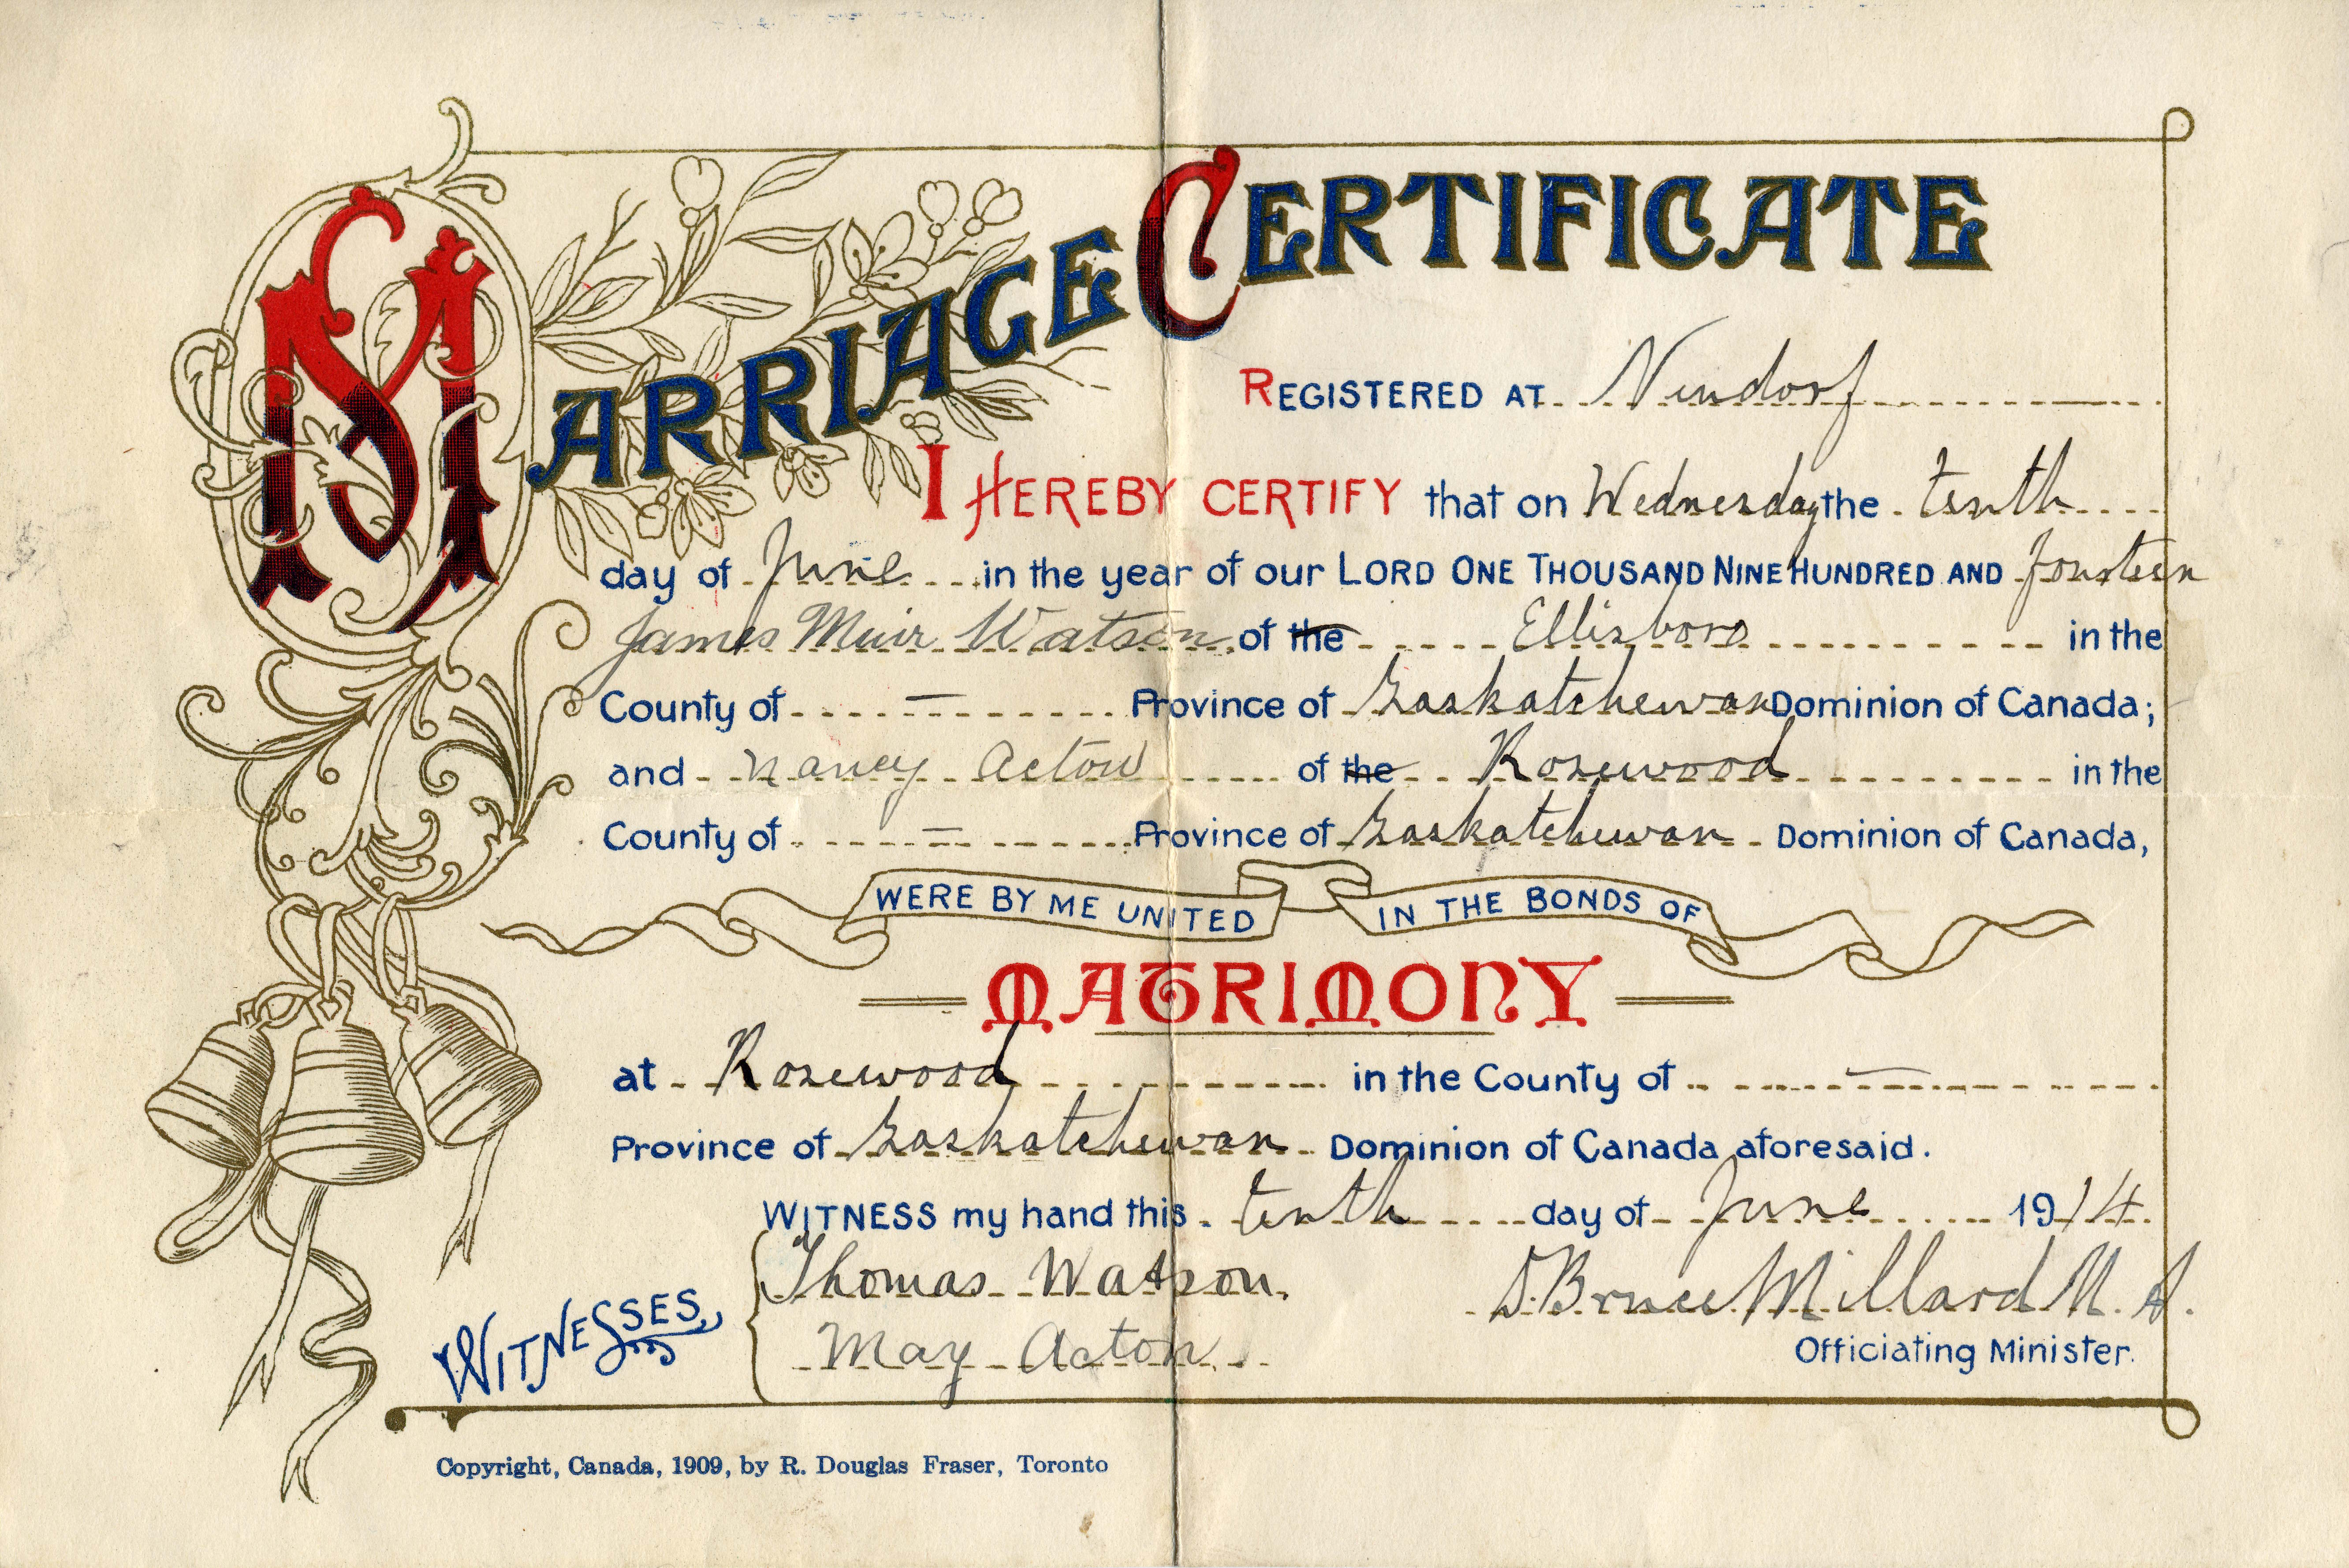 MARRIAGE CERTIFICATE
REGISTERED AT Nindorf
I HEREBY CERTIFY that on Wednesday the tenth
day of June in the year of our LORD ONE THOUSAND NINE HUNDRED AND fourteen
James Muir Watson of the Ellisboro in the
County of — Province of Saskatchewan Dominion of Canada;
and Nancy Acton of the Rosewood in the
County of — Province of Saskatchewan Dominion of Canada,
WERE BY ME UNITED IN THE BONDS OF
MATRIMONY
at Rosewood in the County of —
Province of Saskatchewan Dominion of Canada aforesaid.
WITNESS my hand this tenth day of June 1914.
WITNESSES, Thomas Watson.
May Acton.
S. Bruce Millard M. A.
Officiating Minister.
Copyright, Canada, 1909, by R. Douglas Fraser, Toronto